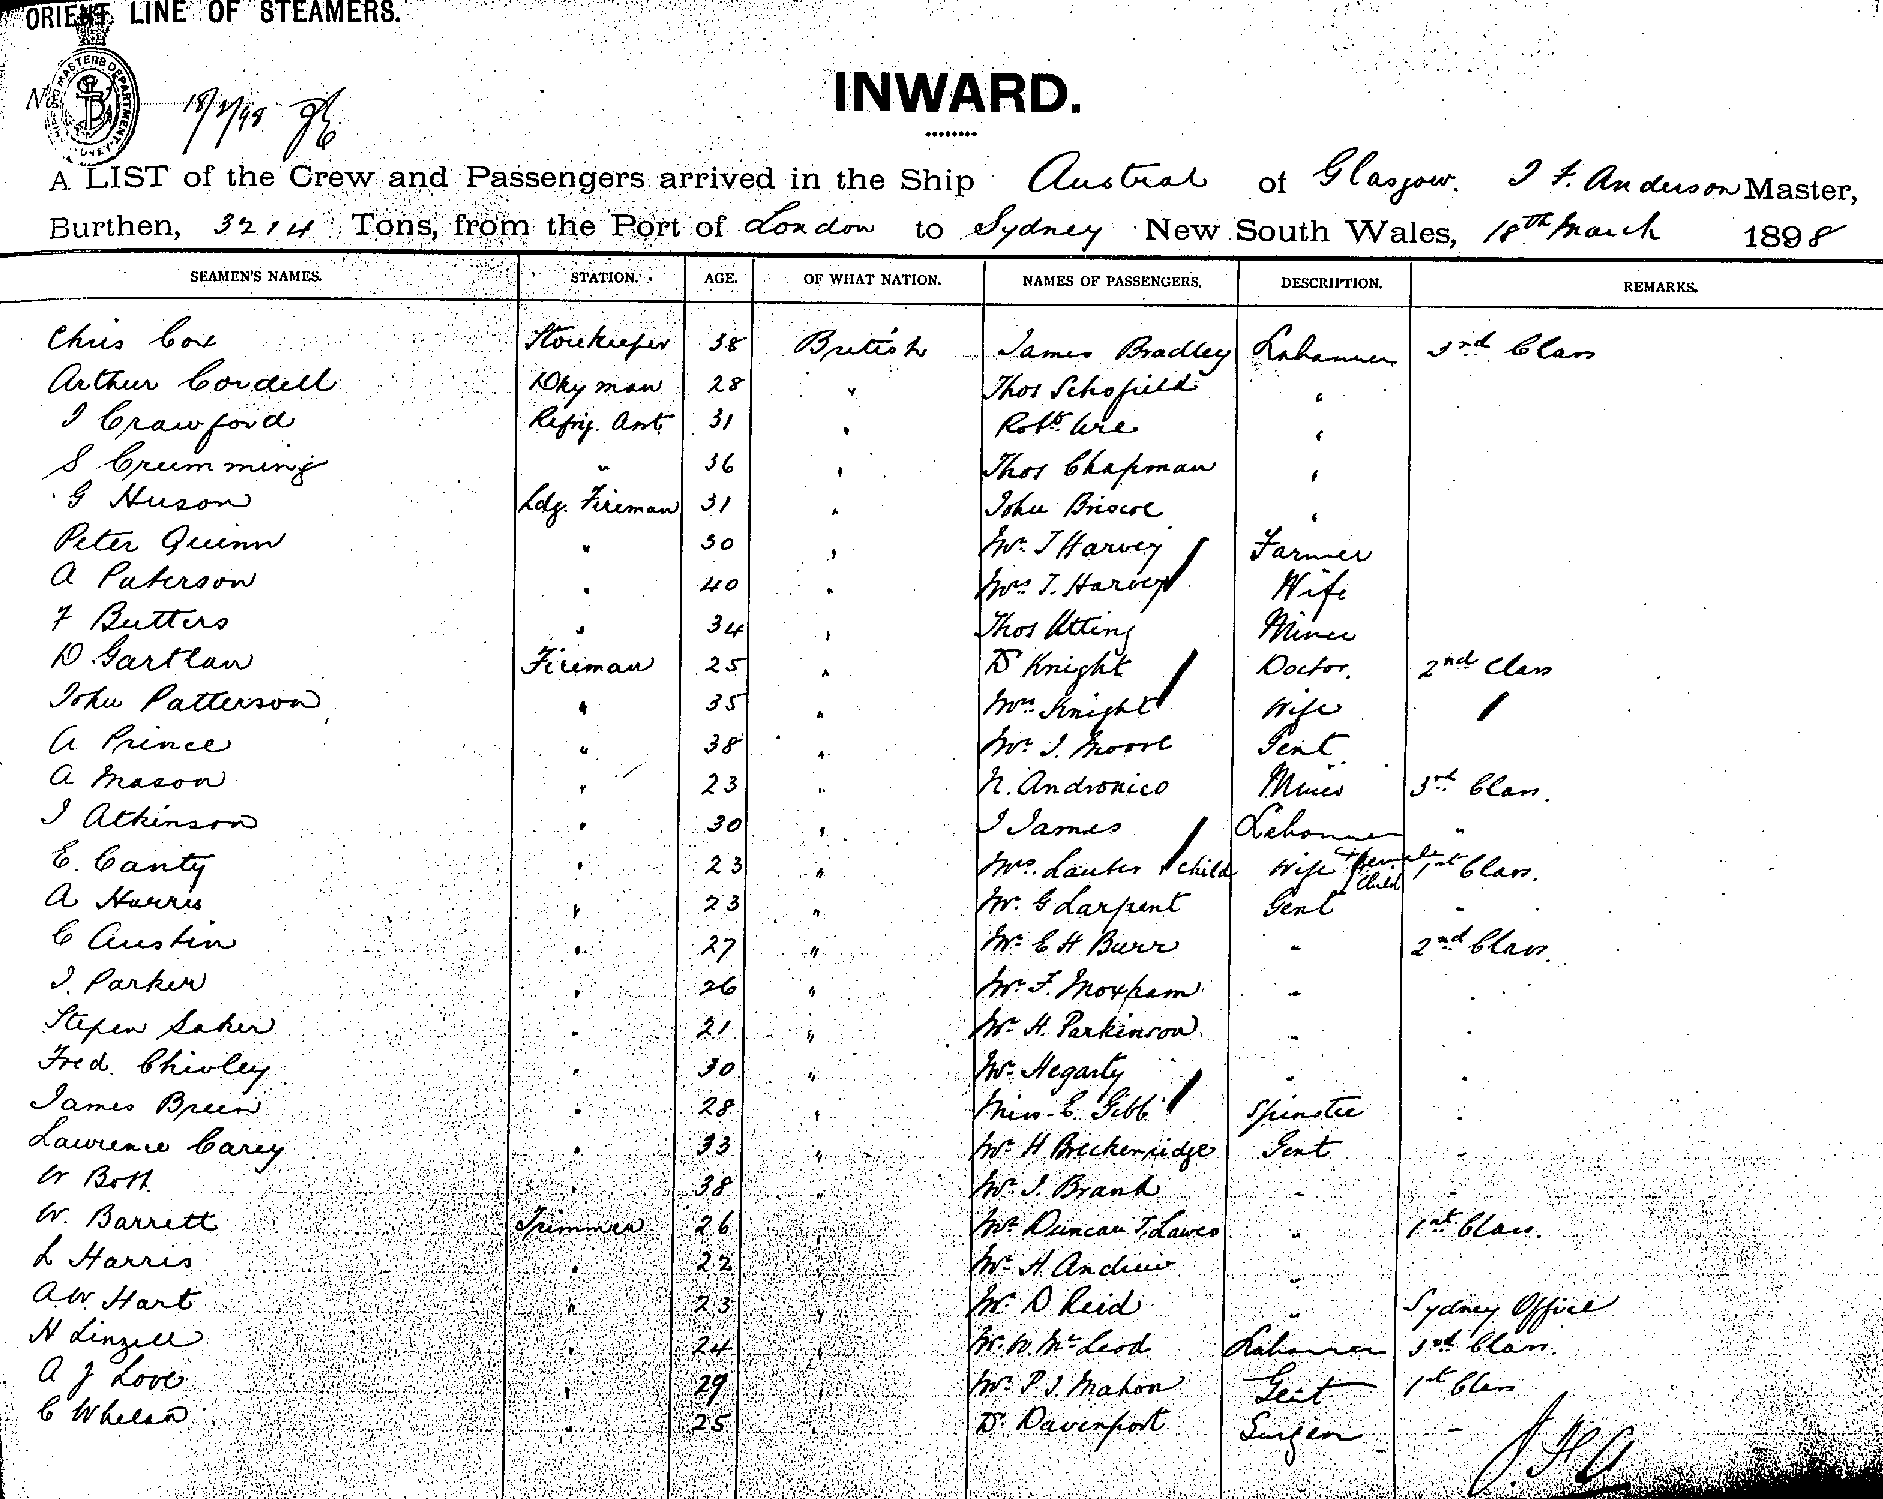 ORIENT LINE OF STEAMERS.
MASTERS DEPARTMENT
No. 18/3/98
INWARD.
A LIST of the Crew and Passengers arrived in the Ship Austral of Glasgow. J F. Anderson Master,
Burthen, 3214 Tons, from the Port of London to Sydney New South Wales, 18th March 1898
SEAMEN'S NAMES. STATION. AGE. OF WHAT NATION. NAMES OF PASSENGERS. DESCRIPTION. REMARKS.
Chris Cox Storekeeper 38 British James Bradley Labourer 3rd Class
Arthur Cordell Dky man 28 " Thos Schofield "
J Crawford Refrig. Asst. 31 " Robt Ure "
S Crumming " 36 " Thos Chapman "
G Huson Ldg. Fireman 31 " John Briscoe "
Peter Quinn " 30 " Mr. J Harvey Farmer
A Paterson " 40 " Mrs J. Harvey Wife
F Butters " 34 " Thos Utting Miner
D Gartlan Fireman 25 " Dr Knight Doctor. 2nd Class
John Patterson " 35 " Mrs Knight Wife
A Prince " 38 " Mr. J. Moore Gent
A Mason " 23 " N. Andronico Miner 3rd Class.
J Atkinson " 30 " J James Labourer "
E. Canty " 23 " Mrs. Lauter & child Wife & female child 1st Class.
A Harris " 23 " Mr. G Larpent Gent "
C Austin " 27 " Mr. E H Burr " 2nd Class.
J. Parker " 26 " Mr F. Moxham " "
Stepen Saker " 21 " Mr H. Parkinson " "
Fred. Chivley 30 " Mr. Hegarty " "
James Breen " 28 " Miss E. Gibb Spinster "
Lawrence Carey " 33 " Mr H Breckenridge Gent "
W Bott " 38 " Mr. J. Brank " "
W. Barrett Trimmer 26 " Mr Duncan T, Lawes " 1st Class.
L Harris " 22 " Mr. H. Andrew "
A.W. Hart " 23 " Mr. D Reid " Sydney Office
H Linzell " 24 " Mr. W. McLeod Labourer 3rd Class.
A J Love " 29 " Mr. P J. Mahon Gent 1st Class
C Whelan " 25 " Dr. Davenport Surgeon "
J. F. A